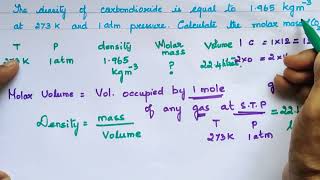 The density of carbondioxide is equal to 1.965 kgm⁻³
at 273K and 1 atm pressure. Calculate the molar mass
T P density Molar mass Volume 1 C = 1×12 =
273K 1atm 1.965 kgm⁻³ ? 22.4 2×O = 2×
Molar Volume = Vol. occupied by 1 mole
of any gas at S.T.P =
Density = mass / Volume T P
273K 1atm